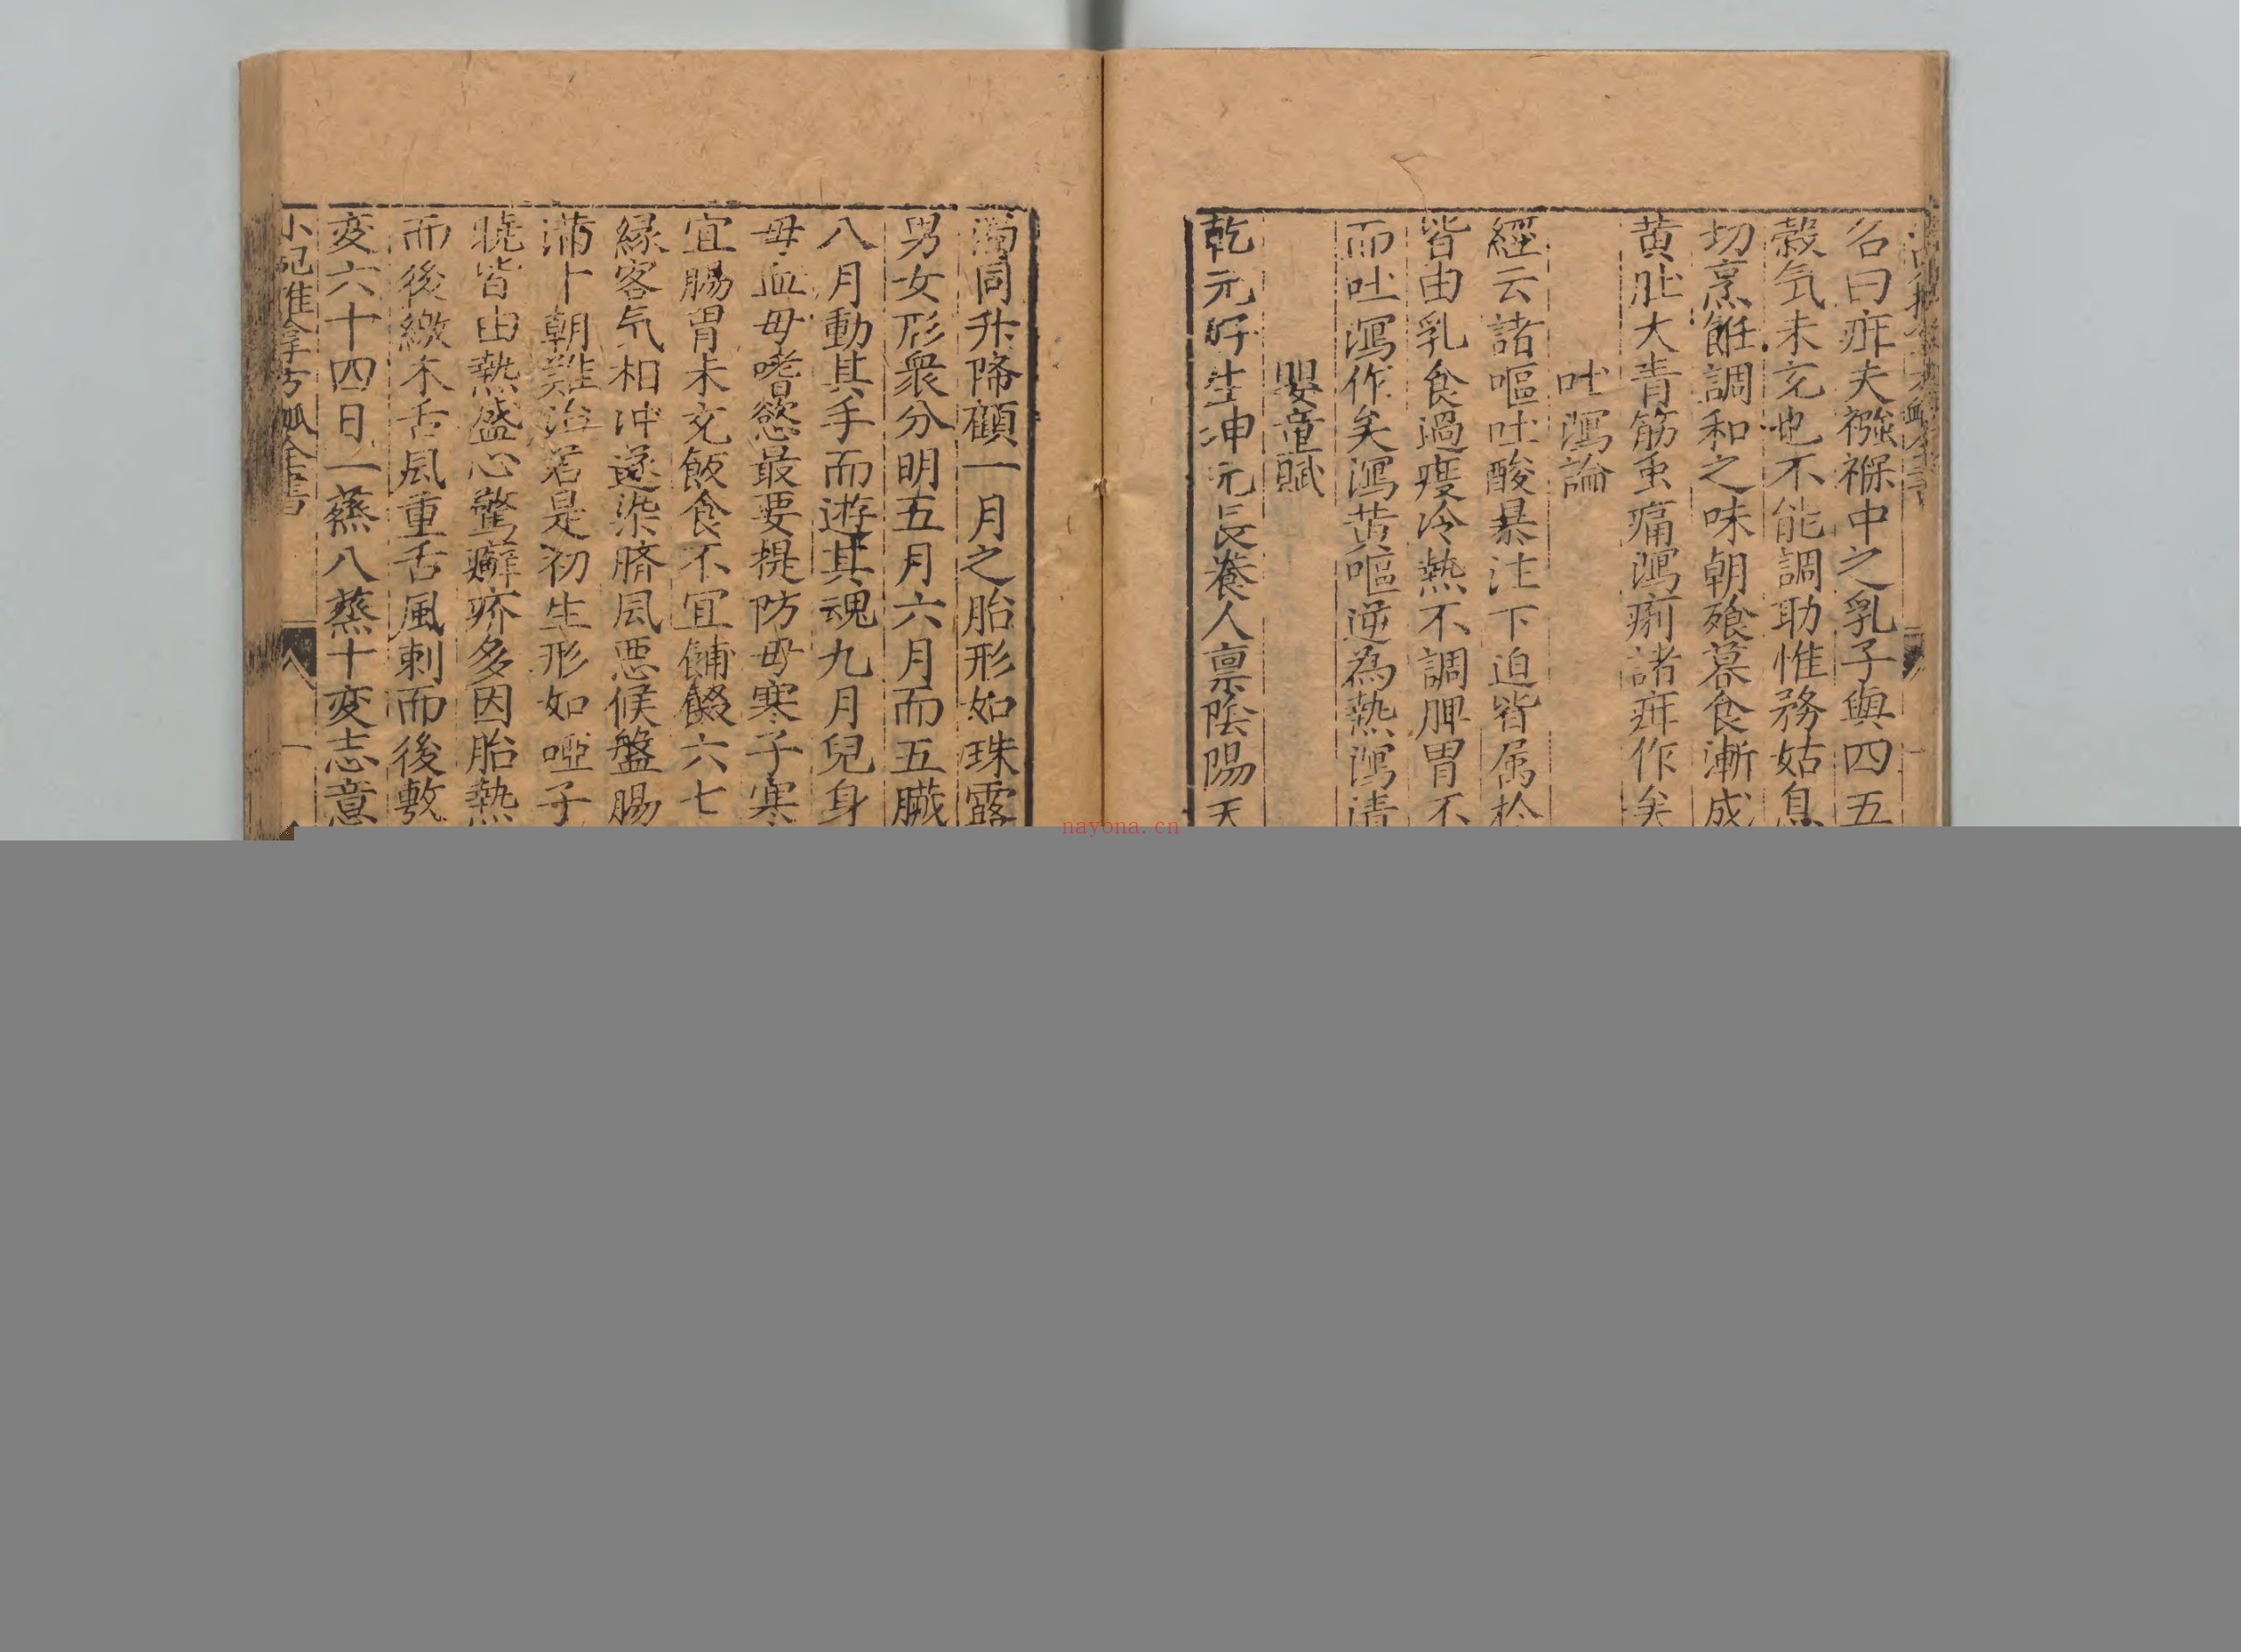 名曰疳夫襁褓中之乳子與四五
穀気未充也不能調助惟務姑息
切烹飪調和之味朝飱暮食漸成
黄肚大青筋虫痛瀉痢諸疳作矣
吐瀉論
經云諸嘔吐酸暴注下迫皆属於
皆由乳食過度冷熱不調脾胃不
而吐瀉作矣瀉黄嘔逆為熱瀉清
嬰童賦
乾元好生坤元長養人禀陰陽天
濁同升降顧一月之胎形如珠露
男女形衆分明五月六月而五臓
八月動其手而遊其魂九月兒身
母血母嗜慾最要提防母寒子寒
宜腸胃未充飯食不宜餔餟六七
縁客気相冲遂染臍風悪候盤腸
満卜朝難治若是初生形如啞子
曉皆由熱盛心驚癬疥多因胎熱
而後繳木舌風重舌風刺而後敷
変六十四日一蒸八蒸十変志意
小児推拿方脉全書
八
一
nayona.cn